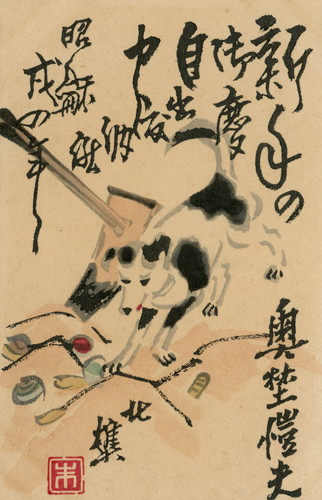 新年の
御慶
目出度
申納候
昭龢
戌
奥埜愷夫
北樵